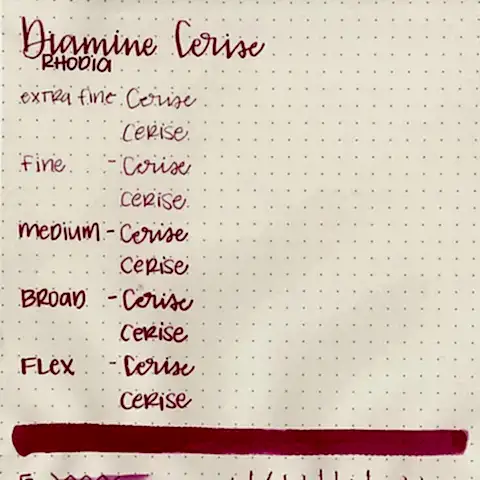 Diamine Cerise
RHODIA
extra fine - Cerise
CERISE
fine - Cerise
CERISE
MEDIUM - Cerise
CERISE
BROAD - Cerise
CERISE
FLEX - Cerise
CERISE